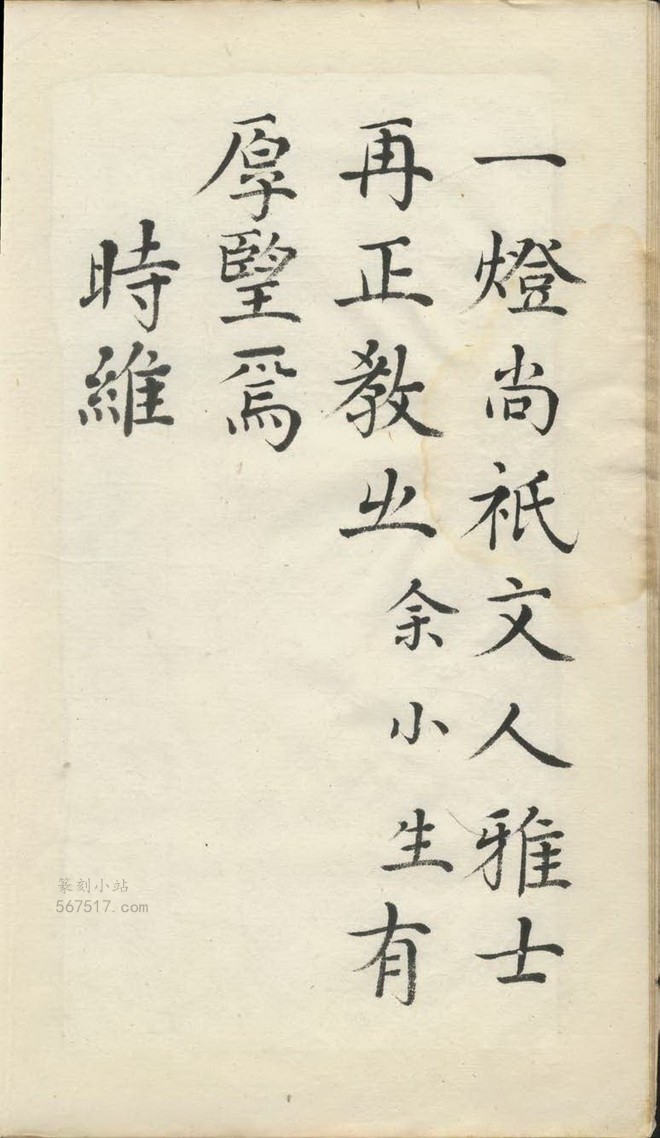 一燈尚祇文人雅士
再正教㞢余小生有
厚朢焉
時維
篆刻小站
567517.com